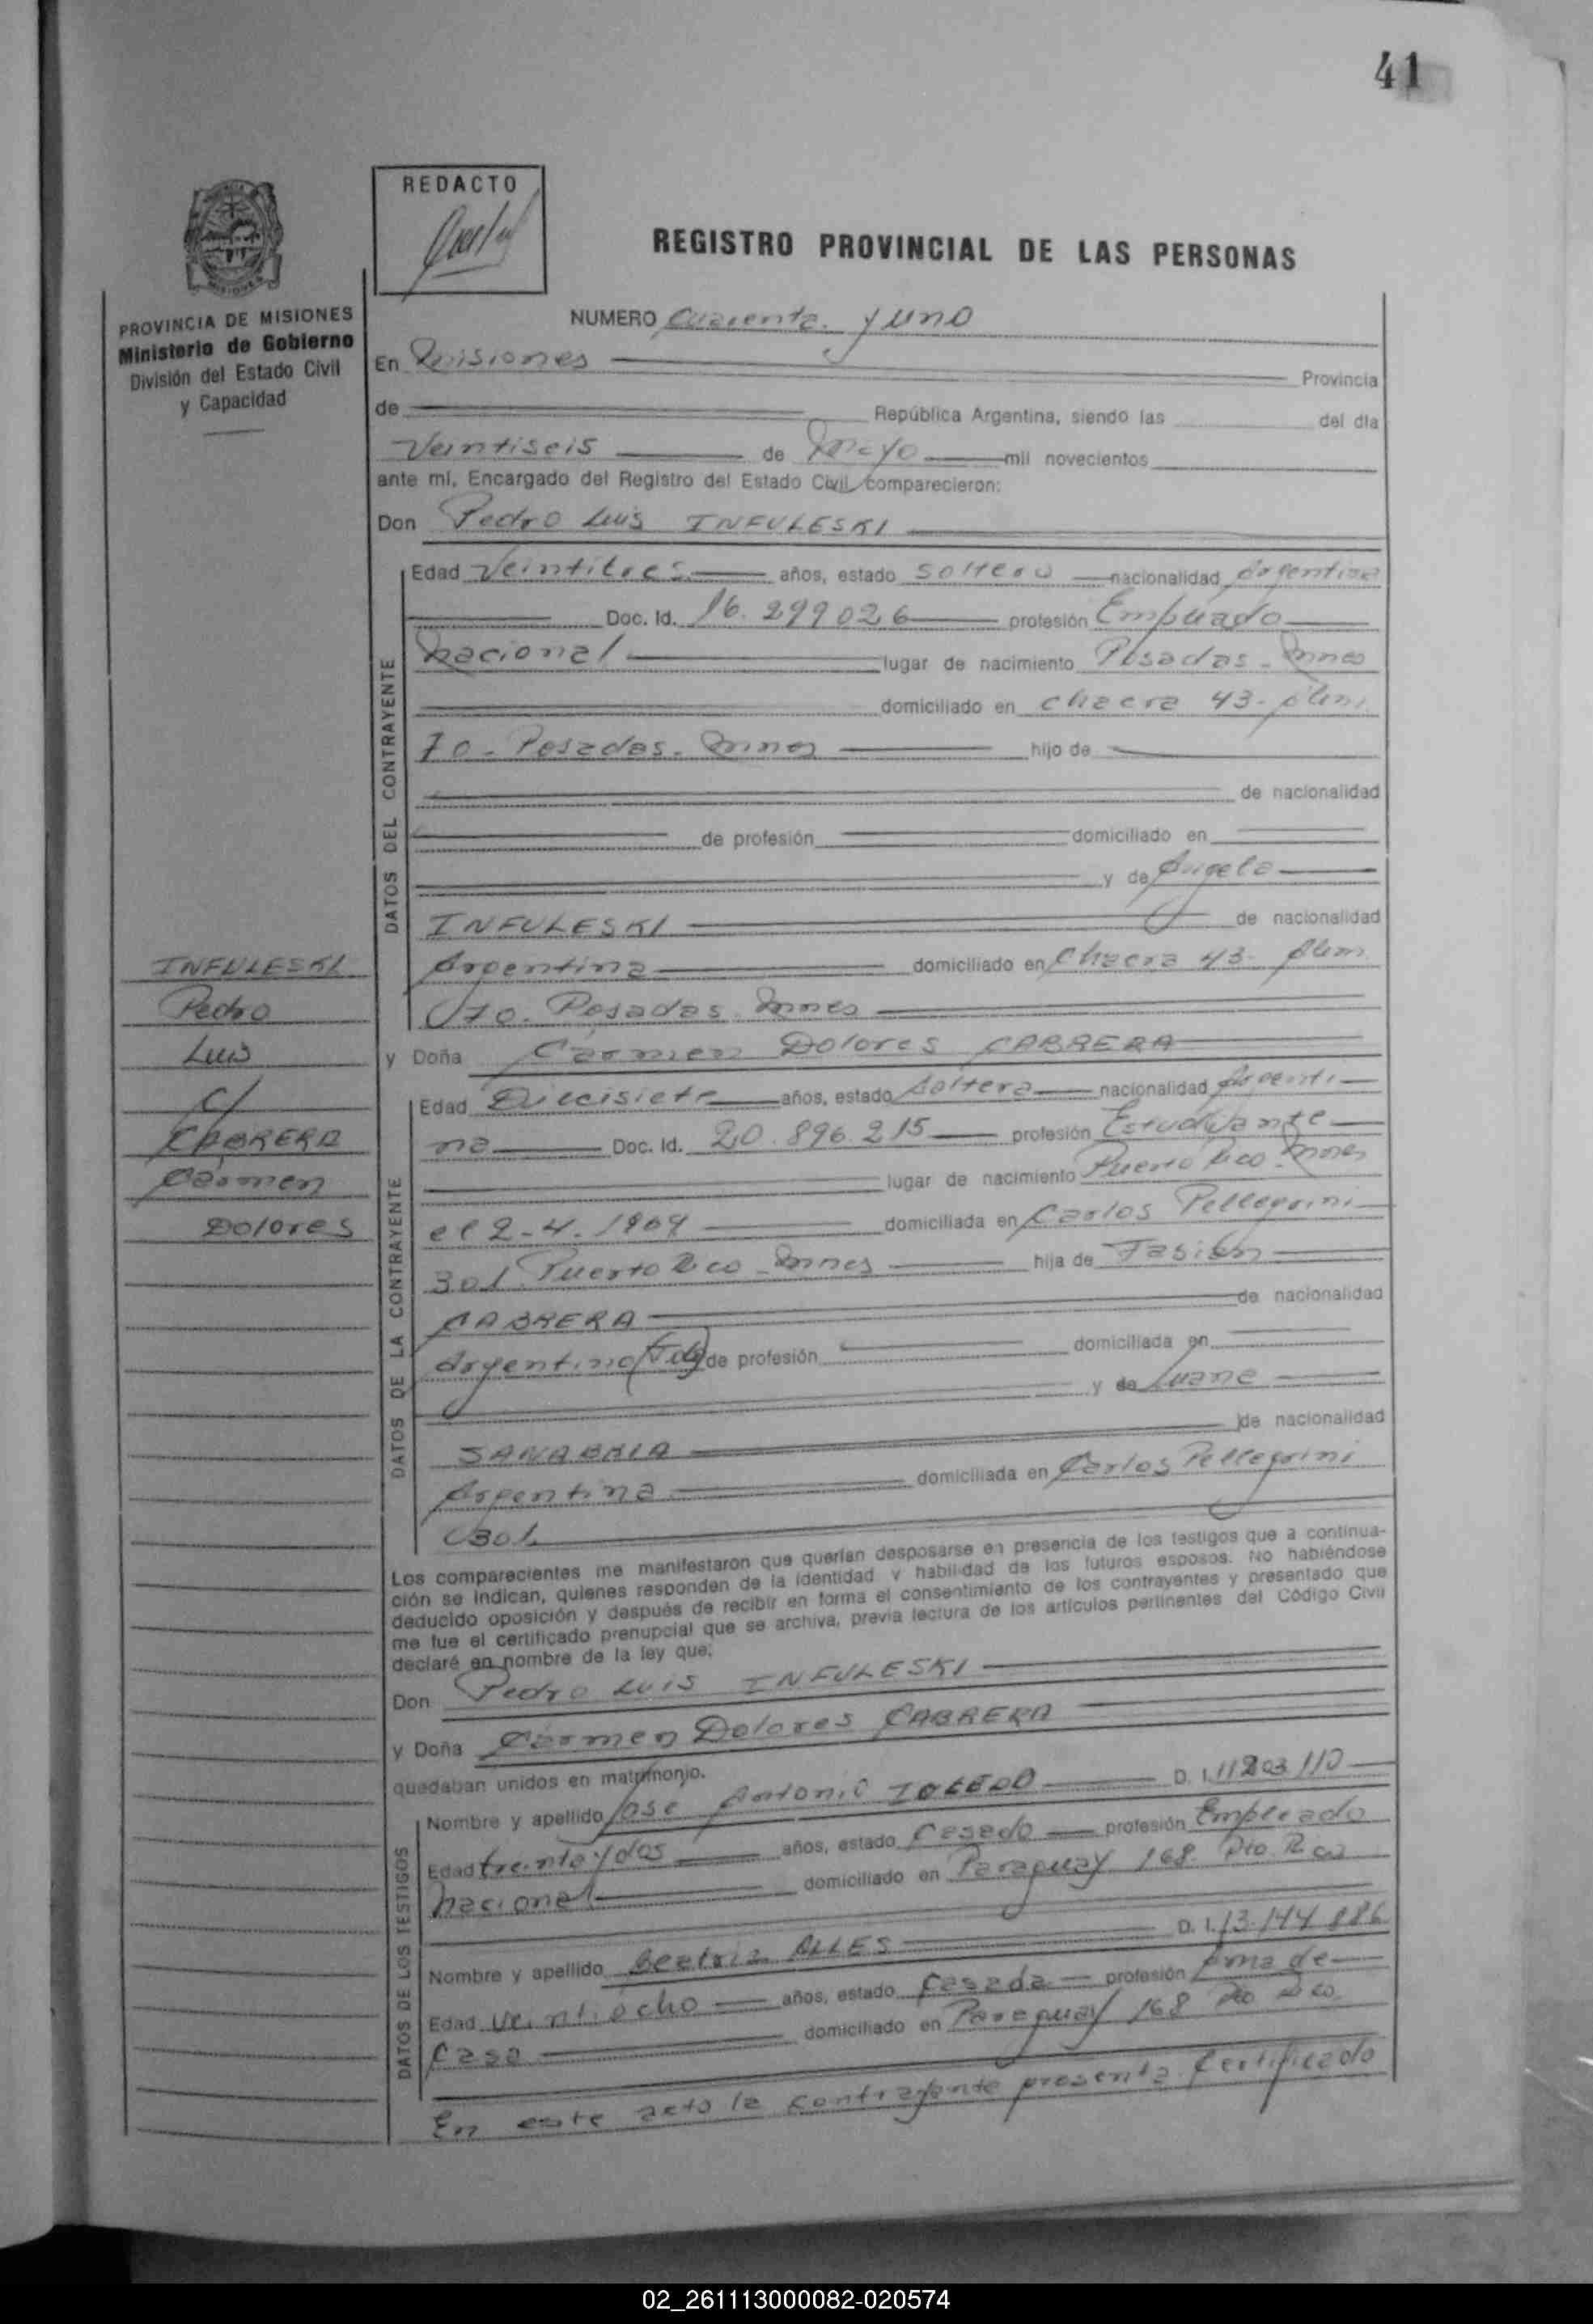 41
REDACTO
REGISTRO PROVINCIAL DE LAS PERSONAS
PROVINCIA DE MISIONES
Ministerio de Gobierno
División del Estado Civil
y Capacidad
NUMERO Cuarenta y uno
En Misiones Provincia
de República Argentina, siendo las del día
Veintiseis de Mayo mil novecientos
ante mí, Encargado del Registro del Estado Civil comparecieron:
Don Pedro Luis INFULESKI
DATOS DEL CONTRAYENTE
Edad Veintitres años, estado soltero nacionalidad Argentina
Doc. Id. 16.299026 profesión Empleado
nacional lugar de nacimiento Posadas - Mnes
domiciliado en chacra 43-
70 - Posadas - Mnes hijo de
de nacionalidad
de profesión domiciliado en
y de Angela
INFULESKI de nacionalidad
Argentina domiciliado en Chacra 43-
70. Posadas Mnes
INFULESKI
Pedro
Luis
c/
CABRERA
Cármen
Dolores
y Doña Cármen Dolores CABRERA
DATOS DE LA CONTRAYENTE
Edad Diecisiete años, estado Soltera nacionalidad Argenti
na Doc. Id. 20.896.215 profesión Estudiante
lugar de nacimiento Puerto Rico - Mnes
el 2-4-1969 domiciliada en Carlos Pellegrini
301 Puerto Rico - Mnes hija de Fabián
CABRERA de nacionalidad
Argentino de profesión domiciliada en
y de
SANABRIA de nacionalidad
Argentina domiciliada en Carlos Pellegrini
301
Los comparecientes me manifestaron que querían desposarse en presencia de los testigos que a continua-
ción se indican, quienes responden de la identidad y habilidad de los futuros esposos. No habiéndose
deducido oposición y después de recibir en forma el consentimiento de los contrayentes y presentado que
me fue el certificado prenupcial que se archiva, previa lectura de los artículos pertinentes del Código Civil
declaré en nombre de la ley que:
Don Pedro Luis INFULESKI
y Doña Cármen Dolores CABRERA
quedaban unidos en matrimonio.
DATOS DE LOS TESTIGOS
Nombre y apellido Jose Antonio TOLEDO D. I. 11203110
Edad treinta y dos años, estado Casado profesión Empleado
nacional domiciliado en Paraguay 168 Pto Rico
Nombre y apellido Beatriz ALLES D. I. 13.144.886
Edad veintiocho años, estado Casada profesión Ama de
Casa domiciliado en Paraguay 168 Pto Rico
En este acto la contrayente presenta Certificado
02_261113000082-020574